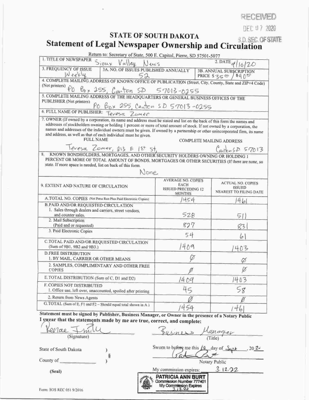 RECEIVED
DEC 07 2020
S.D. SEC. OF STATE
STATE OF SOUTH DAKOTA
Statement of Legal Newspaper Ownership and Circulation
Return to: Secretary of State, 500 E Capitol, Pierre, SD 57501-5077
1. TITLE OF NEWSPAPER Sioux Valley News
2. DATE 9/16/20
3. FREQUENCY OF ISSUE Weekly
3A. NO. OF ISSUES PUBLISHED ANNUALLY 52
3B. ANNUAL SUBSCRIPTION PRICE
4. COMPLETE MAILING ADDRESS OF KNOWN OFFICE OF PUBLICATION (Street, City, County, State and ZIP+4 Code) (Not printers)
PO Box 255, Canton SD 57013-0255
5. COMPLETE MAILING ADDRESS OF THE HEADQUARTERS OR GENERAL BUSINESS OFFICES OF THE PUBLISHER (Not printer)
PO Box 255, Canton SD 57013-0255
6. FULL NAME OF PUBLISHER:
7. OWNER (If owned by a corporation, its name and address must be stated and
FULL NAME
COMPLETE MAILING ADDRESS
Canton SD 57013
8. KNOWN BONDHOLDERS, MORTGAGEES, AND OTHER SECURITY HOLDERS OWNING OR HOLDING 1 PERCENT OR MORE OF TOTAL AMOUNT OF BONDS, MORTGAGES OR OTHER SECURITIES (If there are none, so state. If more space is needed, list on back of this form.
None
9. EXTENT AND NATURE OF CIRCULATION
AVERAGE NO. COPIES EACH ISSUES PRECEDING 12 MONTHS
ACTUAL NO. COPIES ISSUED NEAREST TO FILING DATE
A. TOTAL NO. COPIES 1454 1461
B. PAID AND/OR REQUESTED CIRCULATION
1. Sales through dealers and carriers, street vendors, and counter sales. 528 511
2. Mail Subscription (Paid and or requested) 827 831
3. Paid Electronic Copies 54 61
C. TOTAL PAID AND/OR REQUESTED CIRCULATION (Sum of 9B1, 9B2 and 9B3.) 1409 1403
D. FREE DISTRIBUTION
1. BY MAIL, CARRIER OR OTHER MEANS Ø Ø
2. SAMPLES, COMPLIMENTARY AND OTHER FREE COPIES Ø Ø
E. TOTAL DISTRIBUTION (Sum of C, D1 and D2) 1409 1403
F. COPIES NOT DISTRIBUTED
1. Office use, left over, unaccounted, spoiled after printing 45 58
2. Return from News Agents Ø Ø
G. TOTAL (Sum of E, F1 and F2 - Should equal total shown in A.) 1454 1461
Statement must be signed by Publisher, Business Manager, or Owner in the presence of a Notary Public
I swear that the statements made by me are true, correct, and complete:
Business Manager
(Signature) (Title)
State of South Dakota )
County of )
Sworn to before me this day of Sept 20
Notary Public
(Seal)
My commission expires: 3.12.22
PATRICIA ANN BURT
Commission Number 77401
My Commission Expires
3.12.22